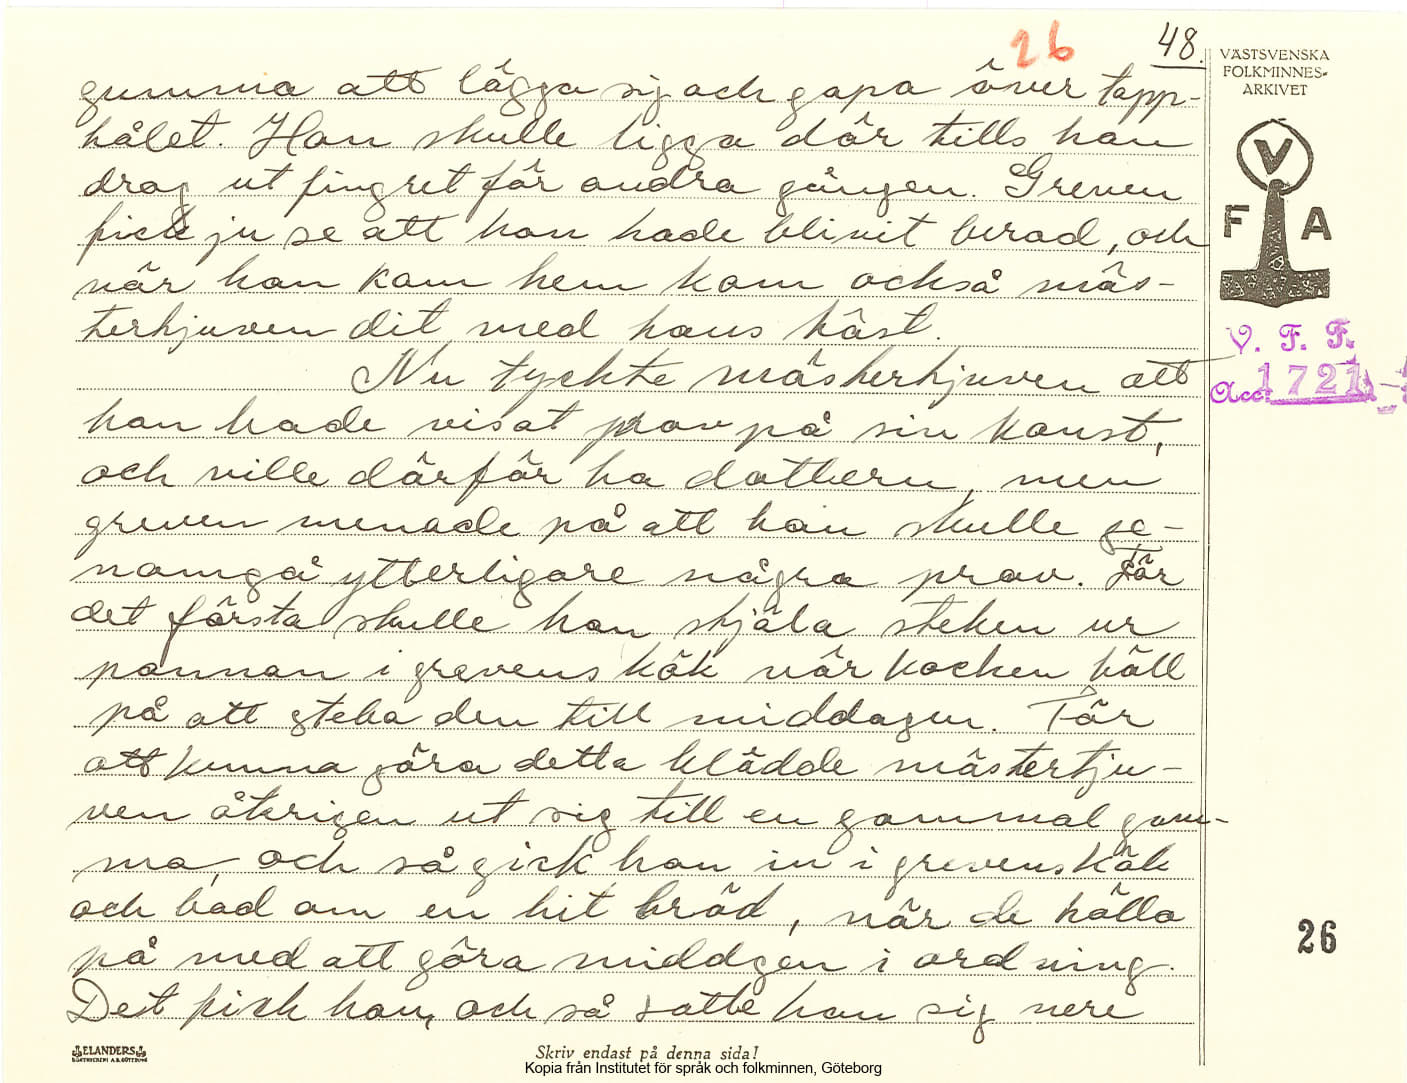 26
48.
VÄSTSVENSKA
FOLKMINNES-
ARKIVET
V
F A
V. F. F.
Acc. 1721
gumma att lägga sig och gapa över tapp-
hålet. Han skulle ligga där tills han
drog ut fingret för andra gången. Greven
fick ju se att han hade blivit lurad, och
när han kom hem kom också mäs-
tertjuven dit med hans häst.
Nu tyckte mästertjuven att
han hade visat prov på sin konst,
och ville därför ha dottern, men
greven menade på att han skulle ge-
nomgå ytterligare några prov. För
det första skulle han stjäla steken ur
pannan i grevens kök när kocken höll
på att steka den till middagen. För
att kunna göra detta klädde mästertju-
ven återigen ut sig till en gammal gum-
ma, och så gick han in i grevens kök
och bad om en bit bröd, när de hölla
på med att göra middgen i ordning.
Det fick han, och så satte han sig nere
26
ELANDERS
Skriv endast på denna sida!
Kopia från Institutet för språk och folkminnen, Göteborg